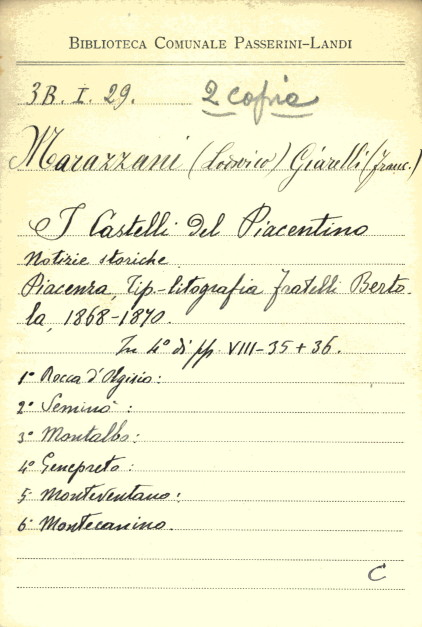 BIBLIOTECA COMUNALE PASSERINI-LANDI
3B. I. 29. 2 copia
Marazzani (Lodovico) Giarelli (Franc.)
I Castelli del Piacentino
Notizie storiche
Piacenza, Tip.-litografia Fratelli Berto-
la, 1868-1870.
In 4° di pp. VIII-35 + 36.
1° Rocca d'Olgisio:
2° Seminò:
3° Montalbo:
4° Genepreto:
5 Monteventano:
6° Montecanino.
C